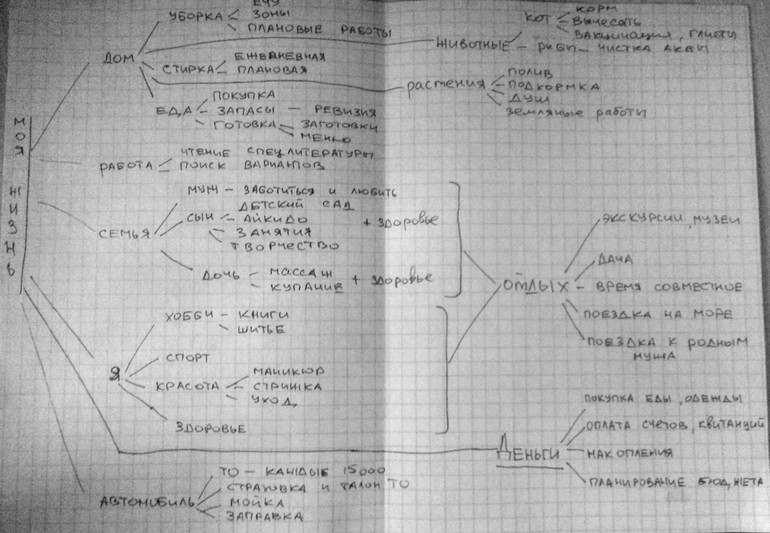 МОЯ ЖИЗНЬ
ДОМ
УБОРКА
ЗОНЫ
ПЛАНОВЫЕ РАБОТЫ
СТИРКА
ЕЖЕДНЕВНАЯ
ПЛАНОВАЯ
ЕДА
ПОКУПКА
ЗАПАСЫ — РЕВИЗИЯ
ГОТОВКА
ЗАГОТОВКИ
МЕНЮ
ЖИВОТНЫЕ
КОТ
КОРМ
ВЫЧЕСАТЬ
ВАКЦИНАЦИЯ, ГЛИСТЫ
РЫБЫ — ЧИСТКА АКВЫ
растения
ПОЛИВ
ПОДКОРМКА
ДУШ
земляные работы
РАБОТА
ЧТЕНИЕ СПЕЦ ЛИТЕРАТУРЫ
ПОИСК ВАРИАНТОВ
СЕМЬЯ
МУЖ — ЗАБОТИТЬСЯ И ЛЮБИТЬ
СЫН
ДЕТСКИЙ САД
АЙКИДО
ЗАНЯТИЯ
ТВОРЧЕСТВО
+ ЗДОРОВЬЕ
ДОЧЬ
МАССАЖ
КУПАНИЕ
+ ЗДОРОВЬЕ
Я
ХОББИ
КНИГИ
ШИТЬЕ
СПОРТ
КРАСОТА
МАНИКЮР
СТРИЖКА
УХОД
ЗДОРОВЬЕ
ОТДЫХ
ЭКСКУРСИИ, МУЗЕИ
ДАЧА
ВРЕМЯ СОВМЕСТНОЕ
ПОЕЗДКА НА МОРЕ
ПОЕЗДКА К РОДНЫМ
МУЖА
ДЕНЬГИ
ПОКУПКА ЕДЫ, ОДЕЖДЫ
ОПЛАТА СЧЕТОВ, КВИТАНЦИЙ
НАКОПЛЕНИЯ
ПЛАНИРОВАНИЕ БЮДЖЕТА
АВТОМОБИЛЬ
ТО — КАЖДЫЕ 15000
СТРАХОВКА И ТАЛОН ТО
МОЙКА
ЗАПРАВКА